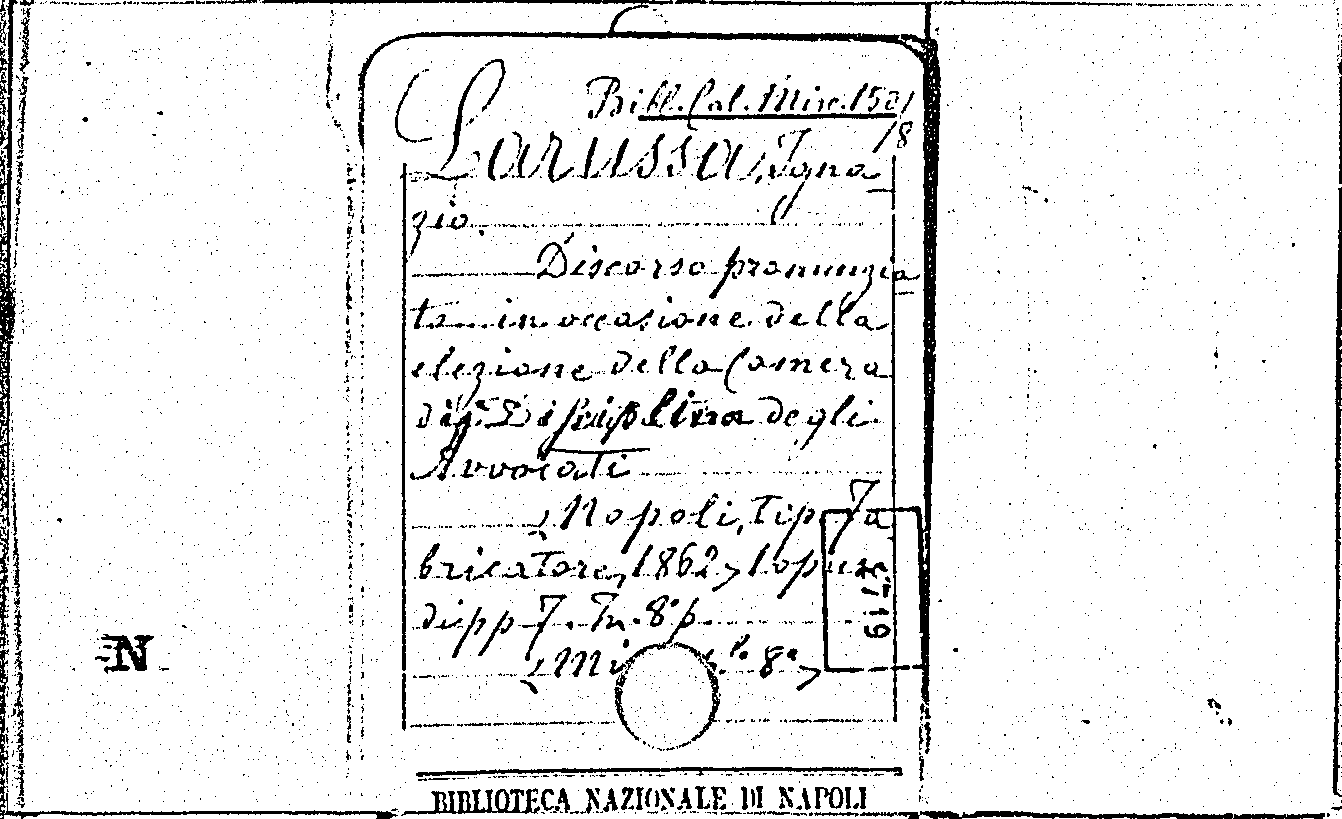 Bibl. Cal. Misc. 150
/8
Larussa, Igna
zio.
Discorso pronunzia
to in occasione della
elezione della Camera
di Disciplina degli
Avvocati
Napoli, tip. Fa
bricatore, 1862, 1 opusc
di pp 7. In 8° p.
N
BIBLIOTECA NAZIONALE DI NAPOLI